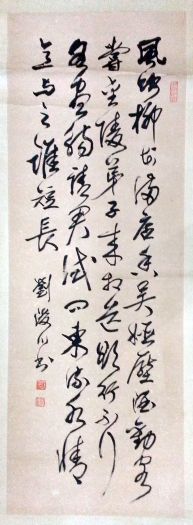 風吹柳花滿店香吳姬壓酒勸客
嘗金陵弟子來相送欲行不行
各盡觴請君試問東流水情
意与之誰短長
劉書